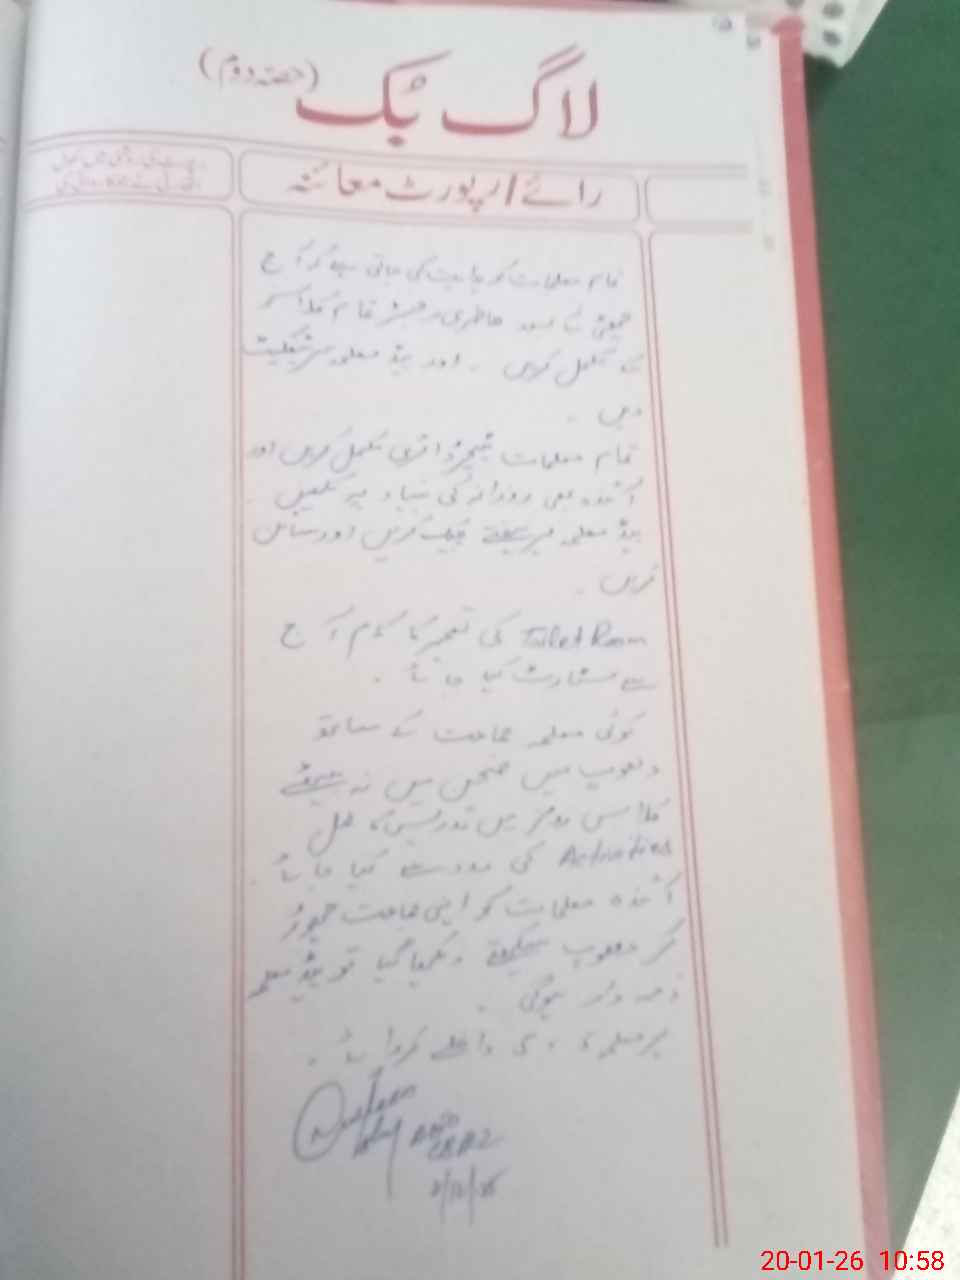 لاگ بک (حصہ دوم)
رائے / رپورٹ معائنہ
تمام معلمات کو ہدایت کی جاتی ہے کہ آج
چھٹی کے بعد حاضری رجسٹر تمام کلاسز
کے مکمل کریں ۔ اور ہیڈ معلمہ سرٹیفکیٹ
دیں ۔
تمام معلمات ٹیچر ڈائری مکمل کریں اور
آئندہ بھی روزانہ کی بنیاد پر لکھیں ۔
ہیڈ معلمہ ہر ہفتے چیک کریں اور سائن
کریں ۔
Toilet Room کی تعمیر کا کام آج
سے سٹارٹ کیا جائے ۔
کوئی معلمہ جماعت کے ساتھ
دھوپ میں صحن میں نہ بیٹھے
کلاس رومز میں تدریس کا عمل
Activities کی مدد سے کیا جائے ۔
آئندہ معلمات کو اپنی جماعت چھوڑ
کر دھوپ سیکتے دیکھا گیا تو ہیڈ معلمہ
ذمہ دار ہوگی ۔
ہر معلمہ داخلے کروائے ۔